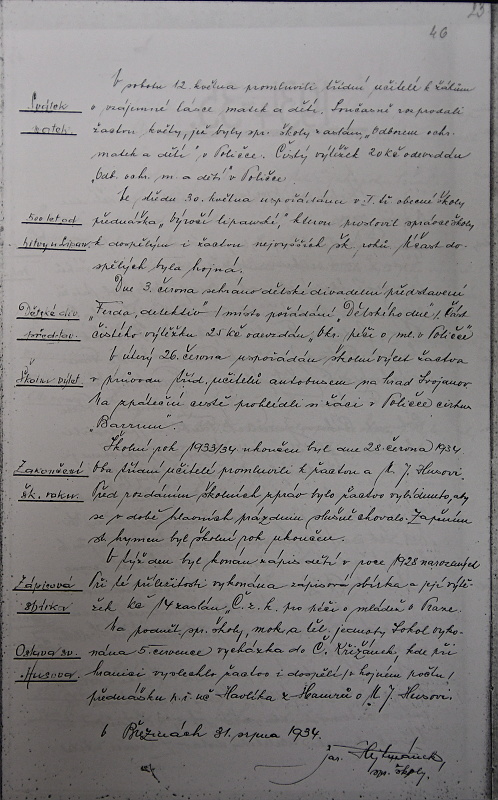 23
46
V sobotu 12. května promluvili třídní učitelé k žákům
Svátek
o vzájemné lásce matek a dětí. Současně rozprodali
matek.
žactvu květy, jež byly spr. školy zaslány "Odborem ochr.
matek a dětí" v Poličce. Čistý výtěžek 20 Kč odevzdán
"Odb. ochr. m. a dětí v Poličce
Ve středu 30. května uspořádána v I. tř. obecné školy
500 let od
přednáška "Výročí lipanské," kterou proslovil správce školy
bitvy u Lipan.
k dospělým i žactvu nejvyšších šk. roků. Účast do-
spělých byla hojná.
Dne 3. června sehráno dětské divadelní představení
Dětské div.
"Ferda, detektiv" / místo pořádání "Dětského dne" /. Část
představ.
čistého výtěžku 25 Kč odevzdán "Okr. péči o ml. v Poličce"
V úterý 26. června uspořádán školní výlet žactva
Školní výlet.
v průvodu tříd. učitelů autobusem na hrad Svojanov
Na zpáteční cestě prohlédli si žáci v Poličce cirkus
"Barrum".
Školní rok 1933/34 ukončen byl dne 28. června 1934.
Zakončení
Oba třídní učitelé promluvili k žactvu o M. J. Husovi.
šk. roku.
Před rozdáním školních zpráv bylo žactvo vybídnuto, aby
se v době hlavních prázdnin slušně chovalo. Zapěním
st. hymen byl školní rok ukončen.
V týž den byl konán zápis dětí v roce 1928 narozených
Zápisová
Při té příležitosti vykonána zápisová sbírka a její výtě-
sbírka
žek Kč 14 zaslán Č. z. k. pro péči o mládež v Praze.
Na podnět spr. školy, a těl. jednoty Sokol vyko-
Oslava sv.
nána 5. července vycházka do Č. Křižánek, kde při
Husova.
hranici vyslechlo žactvo i dospělí / v hojném počtu /
přednášku p. ř. uč. Havlíka z Hamrů o M. J. Husovi.
V Březinách 31. srpna 1934.
Jar. Hejtmánek
spr. školy.